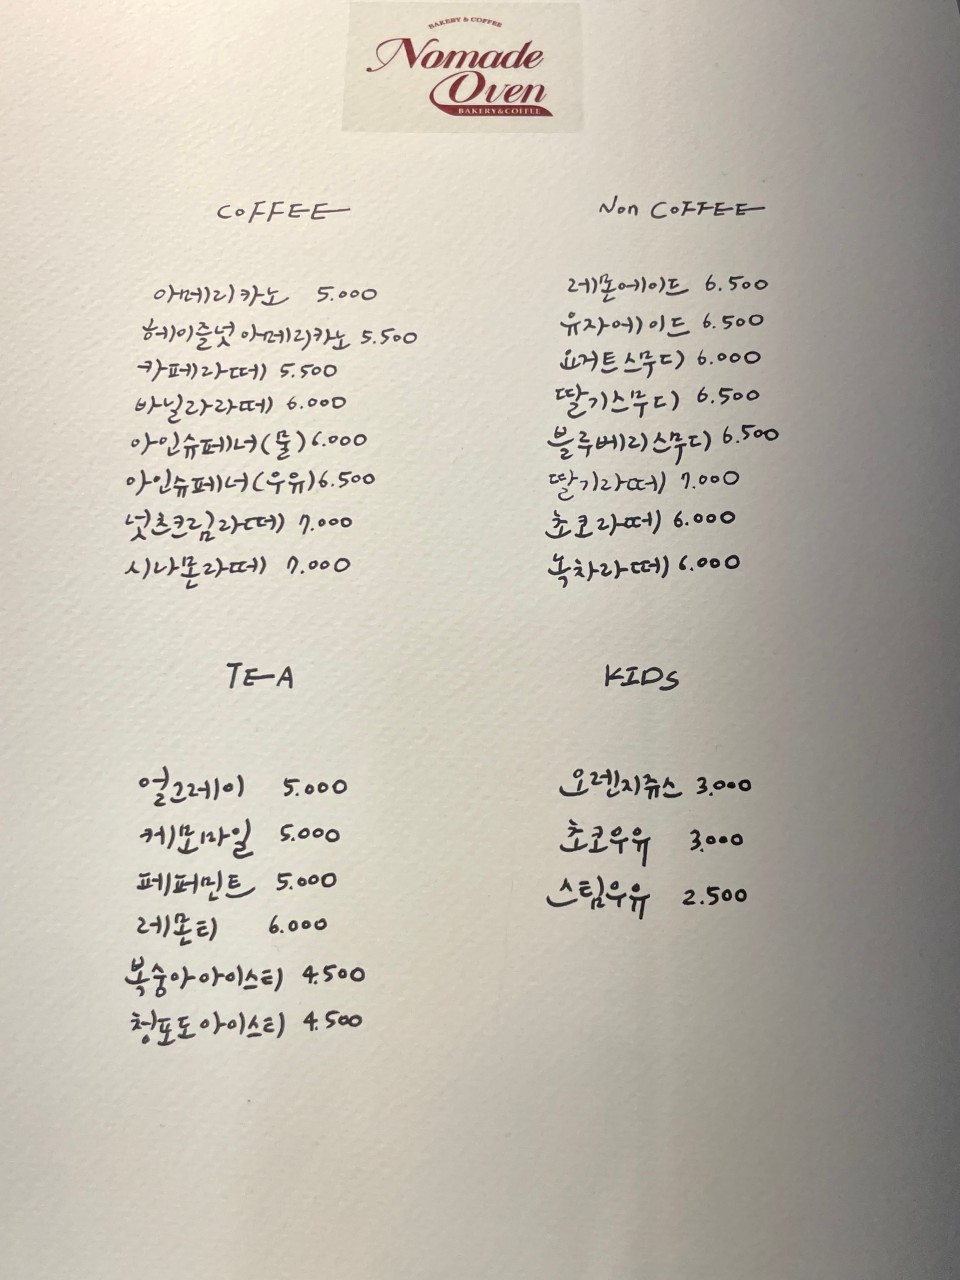 BAKERY & COFFEE
Nomade
Oven
BAKERY&COFFEE
COFFEE
아메리카노 5.000
헤이즐넛 아메리카노 5.500
카페라떼 5.500
바닐라라떼 6.000
아인슈페너(물) 6.000
아인슈페너(우유) 6.500
넛츠크림라떼 7.000
시나몬라떼 7.000
Non COFFEE
레몬에이드 6.500
유자에이드 6.500
요거트스무디 6.000
딸기스무디 6.500
블루베리스무디 6.500
딸기라떼 7.000
초코라떼 6.000
녹차라떼 6.000
TEA
얼그레이 5.000
케모마일 5.000
페퍼민트 5.000
레몬티 6.000
복숭아아이스티 4.500
청포도아이스티 4.500
KIDS
오렌지쥬스 3.000
초코우유 3.000
스팀우유 2.500